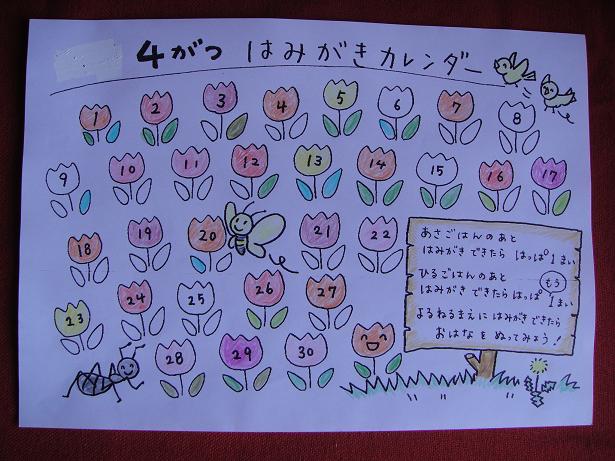 4がつ はみがきカレンダー
1 2 3 4 5 6 7 8
9 10 11 12 13 14 15 16 17
18 19 20 21 22
23 24 25 26 27
28 29 30
あさごはんのあと
はみがき できたら はっぱ 1まい
ひるごはんのあと
はみがき できたら はっぱ もう 1まい
よるねるまえに はみがき できたら
おはなを ぬってみよう!